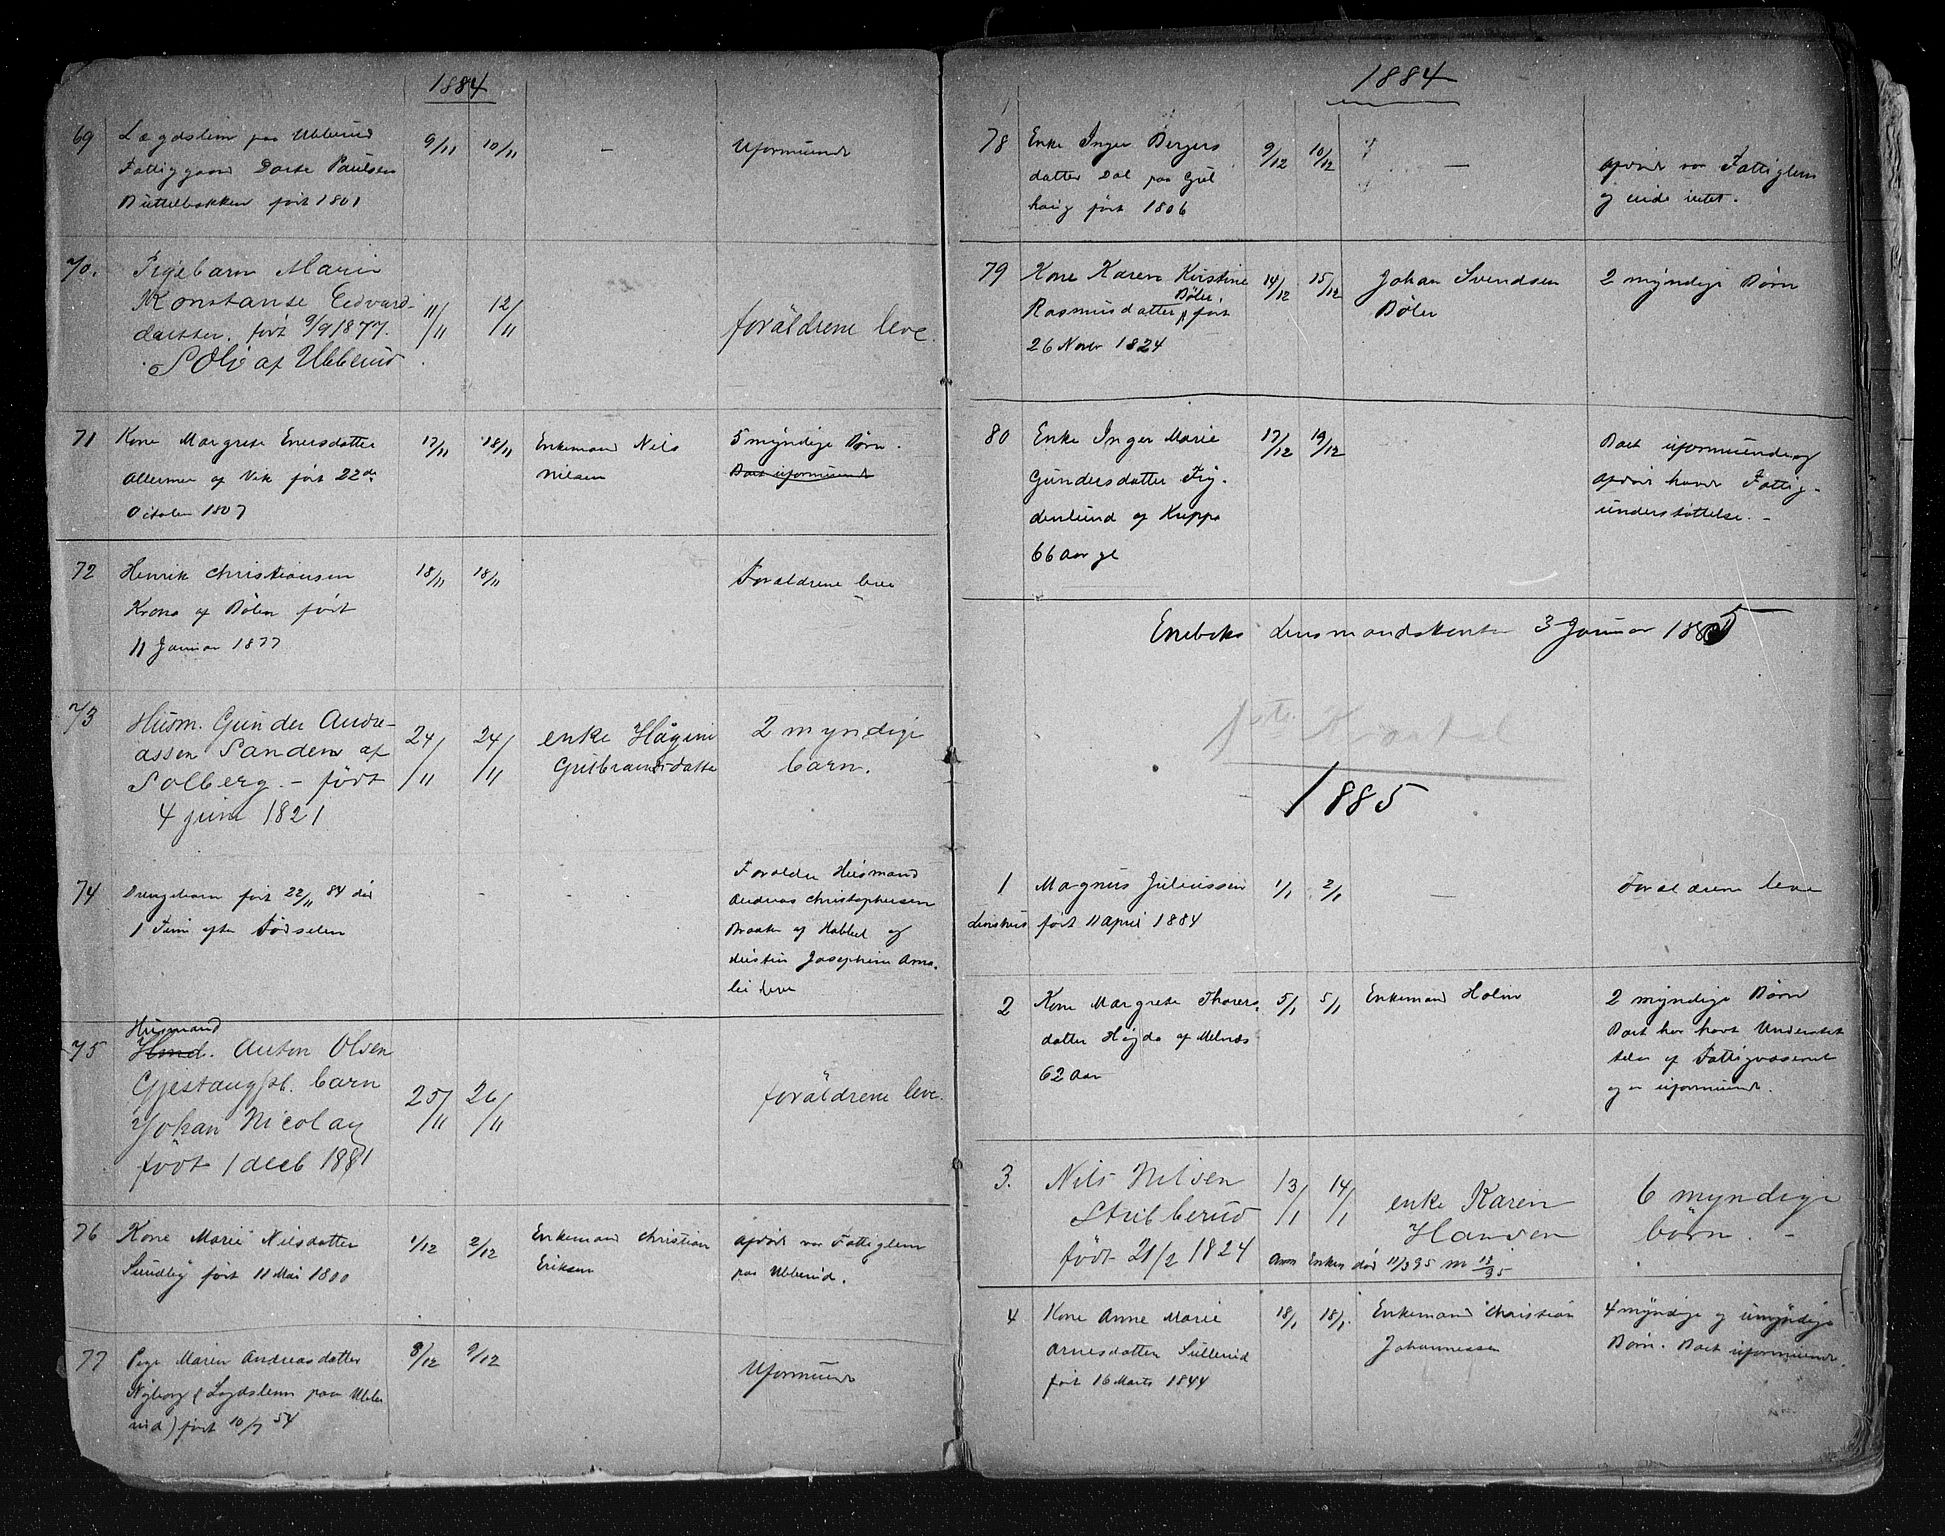 1884
69 Lægdslem paa Ubberud 9/11 10/11 - Uformuende
Fattiggaard Dorte Paulsen
Buttelbakken født 1801
70. Pigebarn Marie
Konstanse Edvard- 11/11 12/11 foräldrene leve.
datter. født 9/9 1877.
af Ubberud
71 Kone Margrete Enersdatter 17/11 18/11 Enkemand Nils 5 myndige Børn.
af Vik født 22de Nilsen Boet uformuende
October 1807
72 Henrik Christiansen 18/11 18/11 Forældrene leve
Krona af Böler født
11 Januar 1877
73 Husm. Gunder Andre- 24/11 24/11 enke Hågine 2 myndige
assen Sanden af Gulbrandsdatter barn.
Solberg. - født
4 juni 1821
74 Drengebarn født 22/11 84 död - - Forældre Husmand
1 Time efter Fødselen Andreas Christophersen
Braaten af og
Hustru Josephine Ama-
lie leve
Husmand
75 Hmd. Anton Olsen 25/11 26/11 foräldrene leve.
barn
Johan Nicolay
født 1 decb 1881
76 Kone Marie Nilsdatter 1/12 2/12 Enkemand Christian afdøde var Fattiglem
Sundby født 11 Mai 1800 Eriksen paa Ubberud.
77 Pige Maren Andreasdatter 8/12 9/12 Uformuende
Nyborg (Lægdslem paa Ubbe-
rud) født 10/7 54
1884
78 Enke Inger Bergers 9/12 10/12 - afdøde var Fattiglem
datter Dal paa Gul og eiede intet.
haug født 1806
79 Kone Karen Kristine 14/12 15/12 Johan Svendsen 2 myndige Børn
Rasmusdatter Böler, født Böler
26 Novbr 1824
80 Enke Inger Marie 17/12 19/12 Boet uformuende og
Gundersdatter Fry- afdøde havde Fattig-
denlund af Krippa understøttelse. -
66 Aar gl
Enebaks Lensmandskontor 3 Januar 1885
1ste Kvartal
1885
1 Magnus Juliussen 1/1 2/1 - Forældrene leve
født 11 april 1884
2 Kone Margrete Thores- 5/1 5/1 Enkemand Holm 2 myndige Børn
datter Højda af Melnæs Boet har havt Understøt
62 Aar telse af Fattigvæsenet
og er uformuende.
3. Nils Nilsen 13/1 14/1 enke Karen 6 myndige
Stribberud Hansen börn. -
født 21/2 1824 Anm Enken död 11/3 95
4 Kone Anne Marie 18/1 18/1. Enkemand Christian 4 myndige og umyndige
Arnesdatter Sullerud Johannessen Børn. Boet uformuende.
født 16 Marts 1844